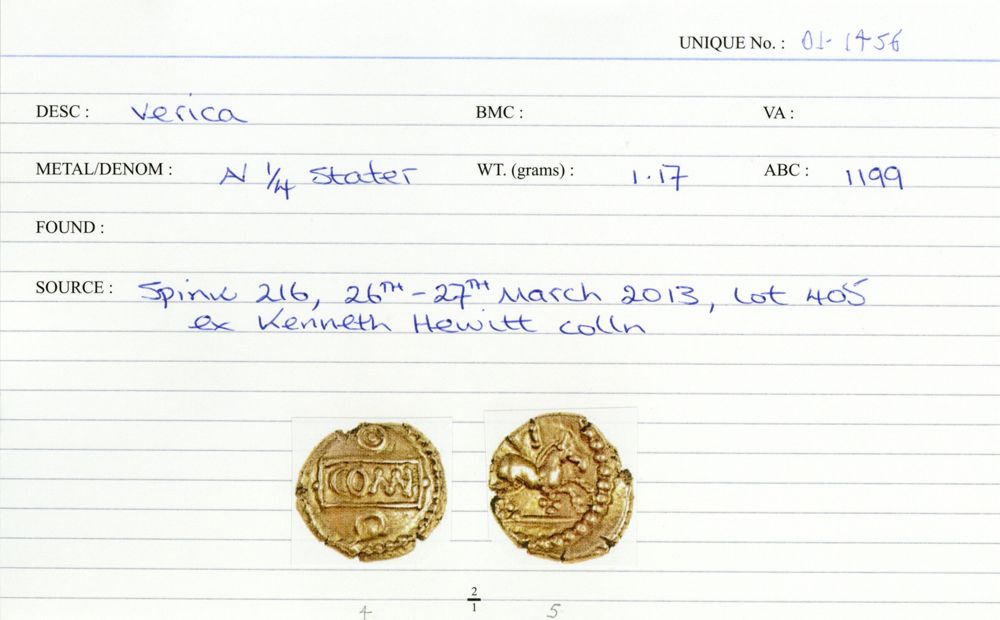 UNIQUE No. : 01-1456
DESC : Verica BMC : VA :
METAL/DENOM : N 1/4 stater WT. (grams) : 1.17 ABC : 1199
FOUND :
SOURCE : Spink 216, 26TH - 27TH March 2013, Lot 405
ex Kenneth Hewitt colln
COMM
2
1
4 5